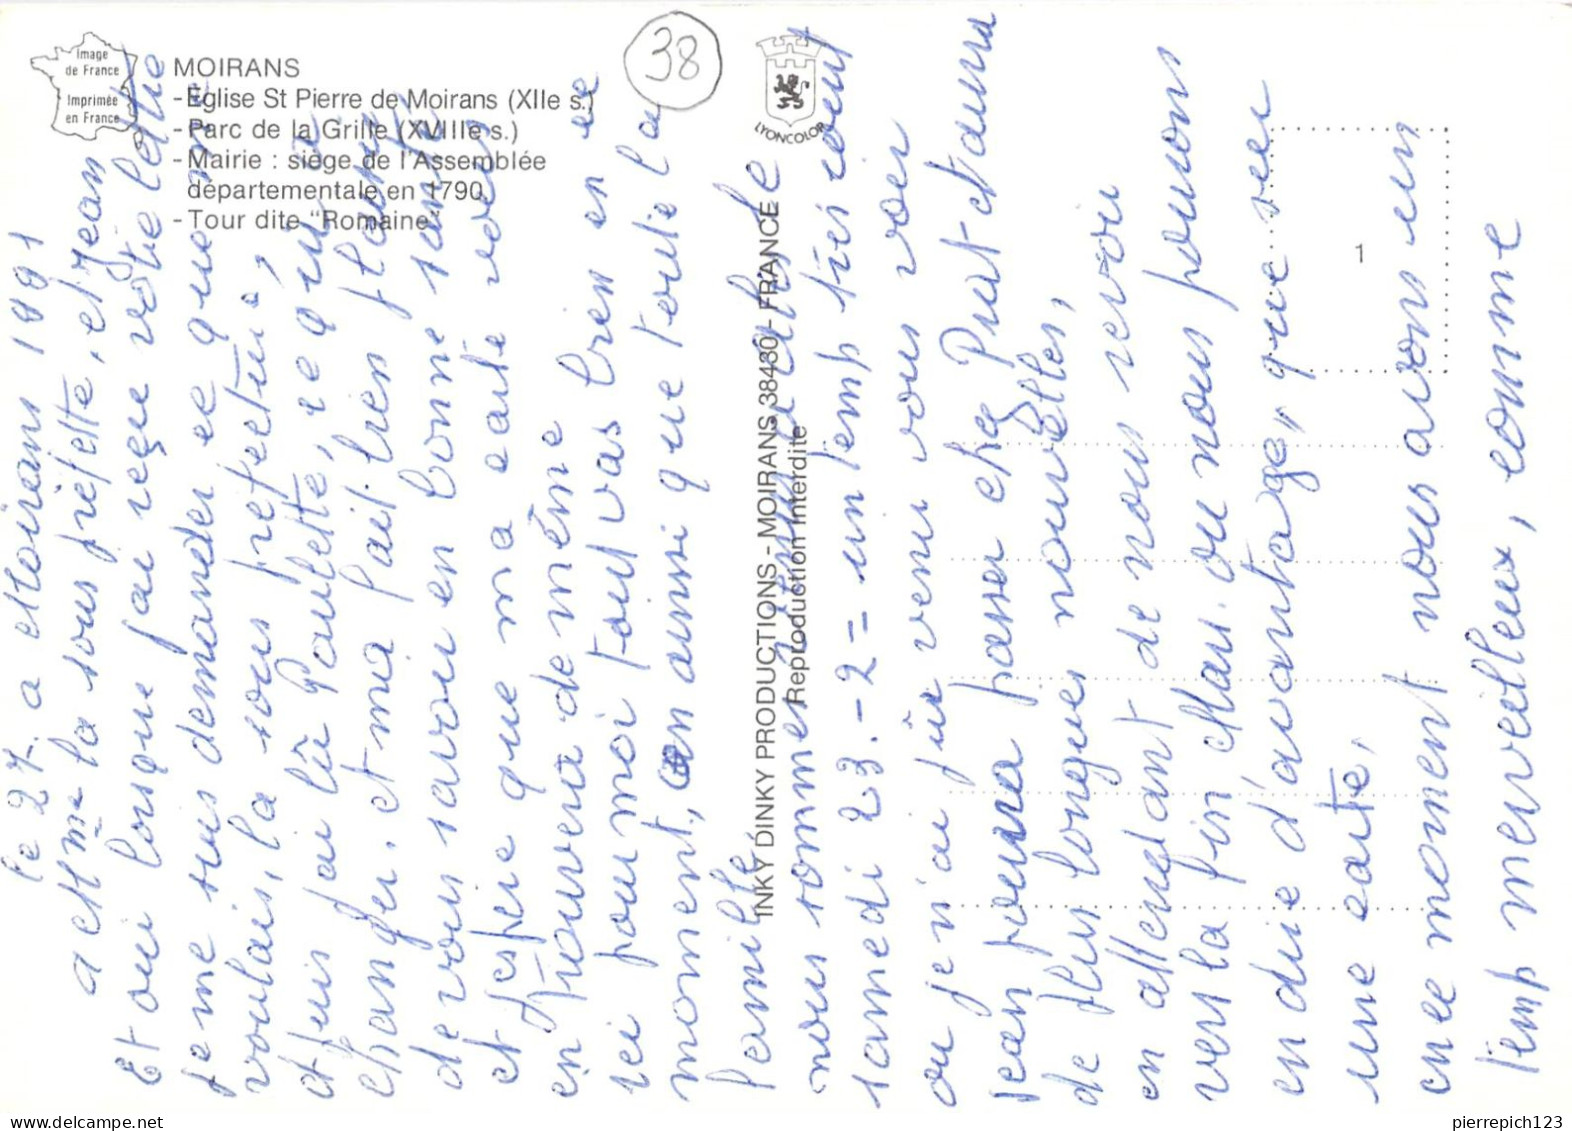 Image
de France
Imprimée
en France
MOIRANS
- Eglise St Pierre de Moirans (XIIe s.)
- Parc de la Grille (XVIIIe s.)
- Mairie : siège de l'Assemblée
départementale en 1790
- Tour dite "Romaine"
38
LYONCOLOR
INKY DINKY PRODUCTIONS - MOIRANS 38430 - FRANCE
Reproduction Interdite
1
le 27. a Moirans 1991
a et Mme la sous préfette, et Jean
Et oui lorsque j'ai reçue votre lettre
je me suis demander ce que me
voulais, la sous prefecture,
et puis j'ai lû Paulette, ce qui a
changer. et m'a fait bien plaisir
de vous savoir en bonne santé
et j'espere que ma carte vous
en trouvera de même
ici pour moi tout vas bien en ce
moment, ainsi que toute la
famille
nous sommes
samedi 23.-2 = un temp très court
ou je n'ai pûe venir vous voir
Jean pourra passer chez Prat et aura
de plus longues nouvelles,
en attendant de nous revoir
vers la fin Mars. ou nous pouvons
en dire d'avantage, que sur
une carte,
en ce moment nous avons un
temp merveilleux, comme
pierrepich123